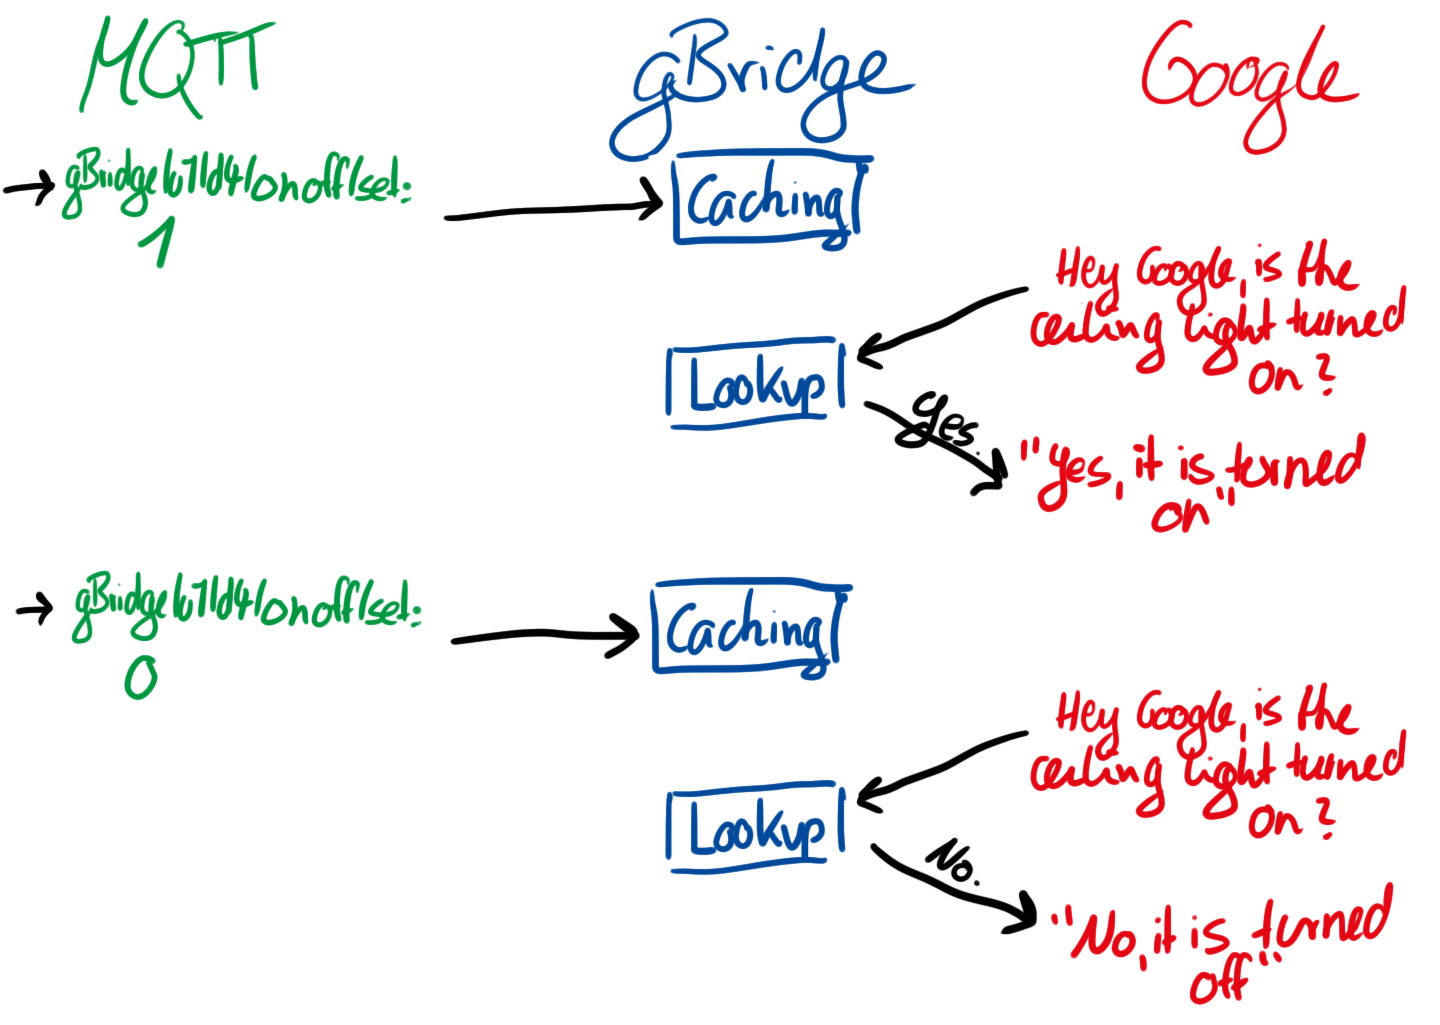 MQTT
gBridge
Google
gBridge/u1/d4/onoff/set:
1
Caching
Hey Google, is the
ceiling light turned
on?
Lookup
yes.
"yes, it is turned
on"
gBridge/u1/d4/onoff/set:
0
Caching
Hey Google, is the
ceiling light turned
on?
Lookup
No.
"No, it is turned
off"